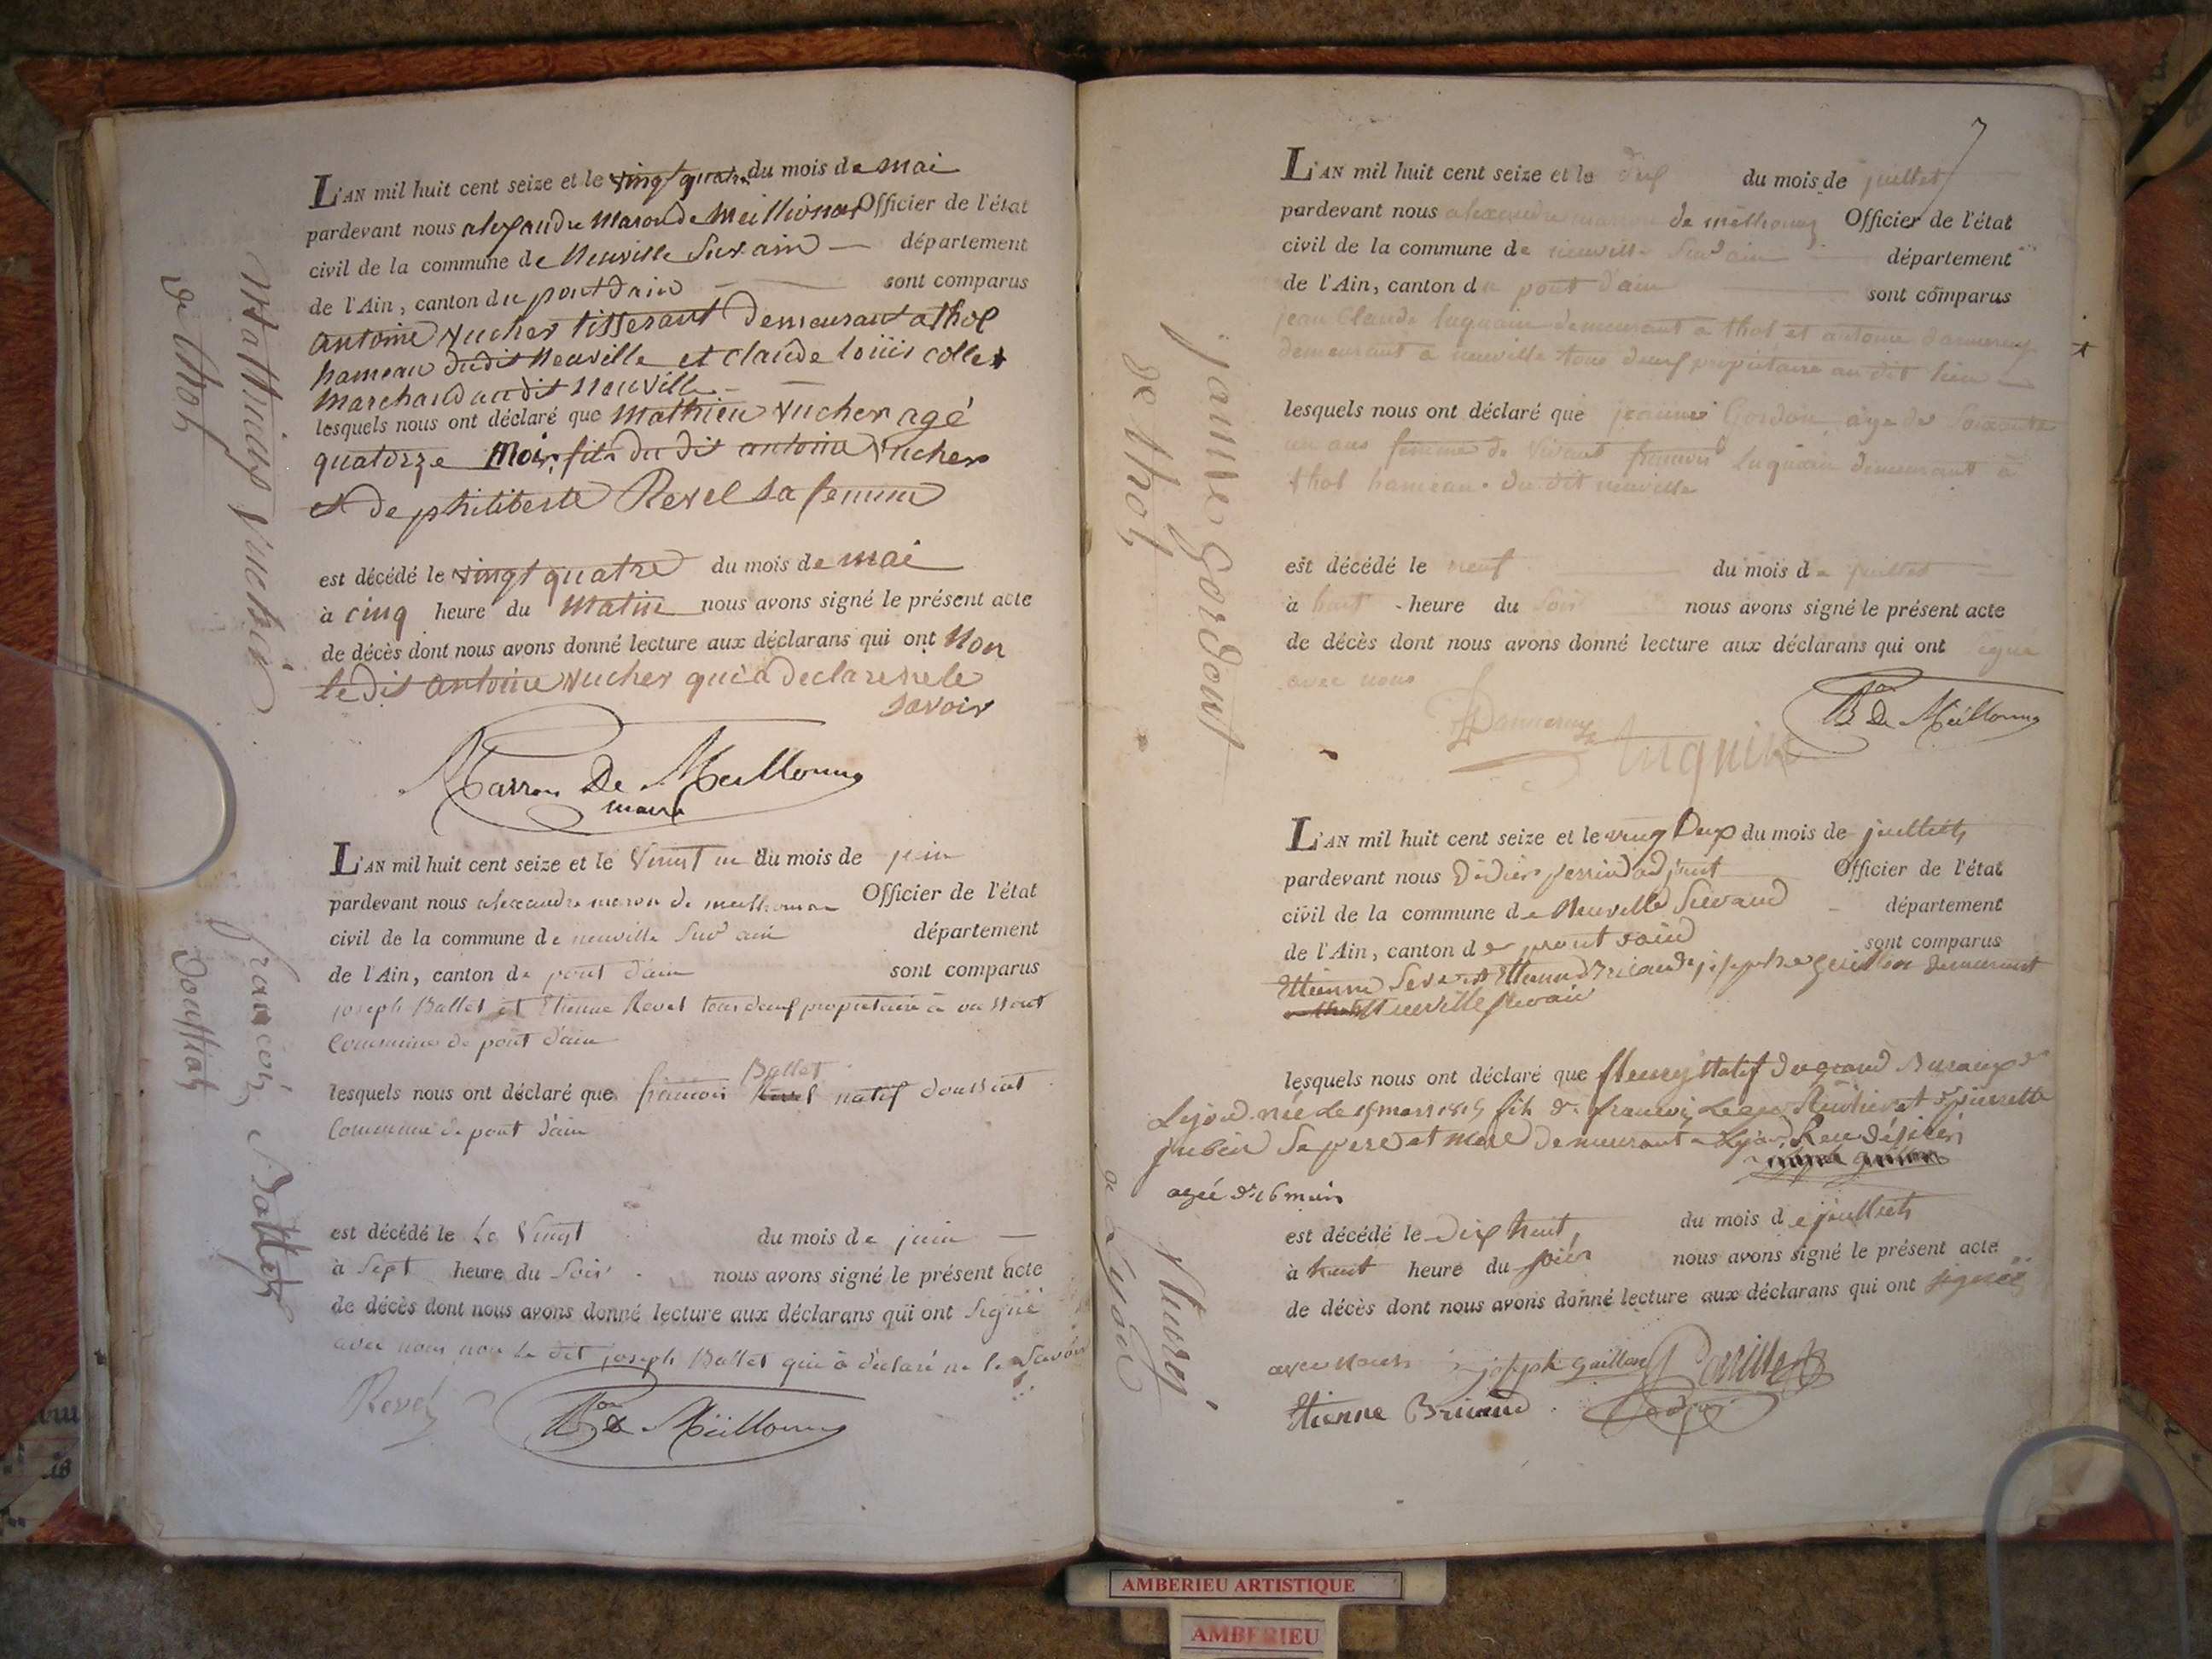 Matthieu Vucher
de thol
L'AN mil huit cent seize et le vingt quatre du mois de mai
pardevant nous alexandre Maron de Meillionas Officier de l'état
civil de la commune de Neuville Sur ain département
de l'Ain, canton du pont dain sont comparus
antoine Vucher tisserant demeurant a thol
hameau dudit Neuville et claude louis collet
marchand au dit Neuville
lesquels nous ont déclaré que Mathieu Vucher agé
quatorze Mois, fils du dit antoine Vucher
et de philiberte Revel sa femme
est décédé le vingt quatre du mois de mai
à cinq heure du Matin nous avons signé le présent acte
de décès dont nous avons donné lecture aux déclarans qui ont Non
le dit antoine Vucher qui a declare ne le
savoir
Marron De Meillonnas
maire
francois Ballet
L'AN mil huit cent seize et le Vingt un du mois de juin
pardevant nous alexandre maron de meillonnas Officier de l'état
civil de la commune de neuville Sur ain département
de l'Ain, canton de pont dain sont comparus
joseph Ballet et Etienne Revel tous deux propriétaire à oussiat
Commune de pont d'ain
lesquels nous ont déclaré que francois Ballet natif doussiat
Commune de pont d'ain
est décédé le Le Vingt du mois de juin
à Sept heure du Soir nous avons signé le présent acte
de décès dont nous avons donné lecture aux déclarans qui ont Signé
avec nous non le dit joseph Ballet qui à déclaré ne le Savoir
Revel
Mon De Meillonnas
7
janne gordont
de thol
L'AN mil huit cent seize et le dix du mois de juillet
pardevant nous alexandre marron de meillonnas Officier de l'état
civil de la commune de neuville Sur ain département
de l'Ain, canton de pont d'ain sont comparus
jean Claude luquain demeurant a thol et antoine
demeurant a neuville tous deux propriétaire au dit lieu
lesquels nous ont déclaré que jeanne Gordon age de Soixante
un ans femme de Vivant francois luquain demeurant à
thol hameau du dit neuville
est décédé le neuf du mois de juillet
à huit heure du Soir nous avons signé le présent acte
de décès dont nous avons donné lecture aux déclarans qui ont signé
avec nous
luquin
Mon De Meillonnas
fleury
de Lyon
L'AN mil huit cent seize et le du mois de juilliets
pardevant nous Didier perrin adjoint Officier de l'état
civil de la commune de Neuville département
de l'Ain, canton de pont dain sont comparus
Etienne joseph guillon demeurant
Neuville
lesquels nous ont déclaré que fleury Natif du grand
Lyon née le mars 1815 fils de francois et pierrette
Se pere et mere demeurant a Lyon Rue
agée de 16 mois
est décédé le dix huit du mois de juilliets
à huit heure du soir nous avons signé le présent acte
de décès dont nous avons donné lecture aux déclarans qui ont signée
avec nous joseph guillon
Etienne Bricand adjoint
AMBERIEU ARTISTIQUE
AMBERIEU